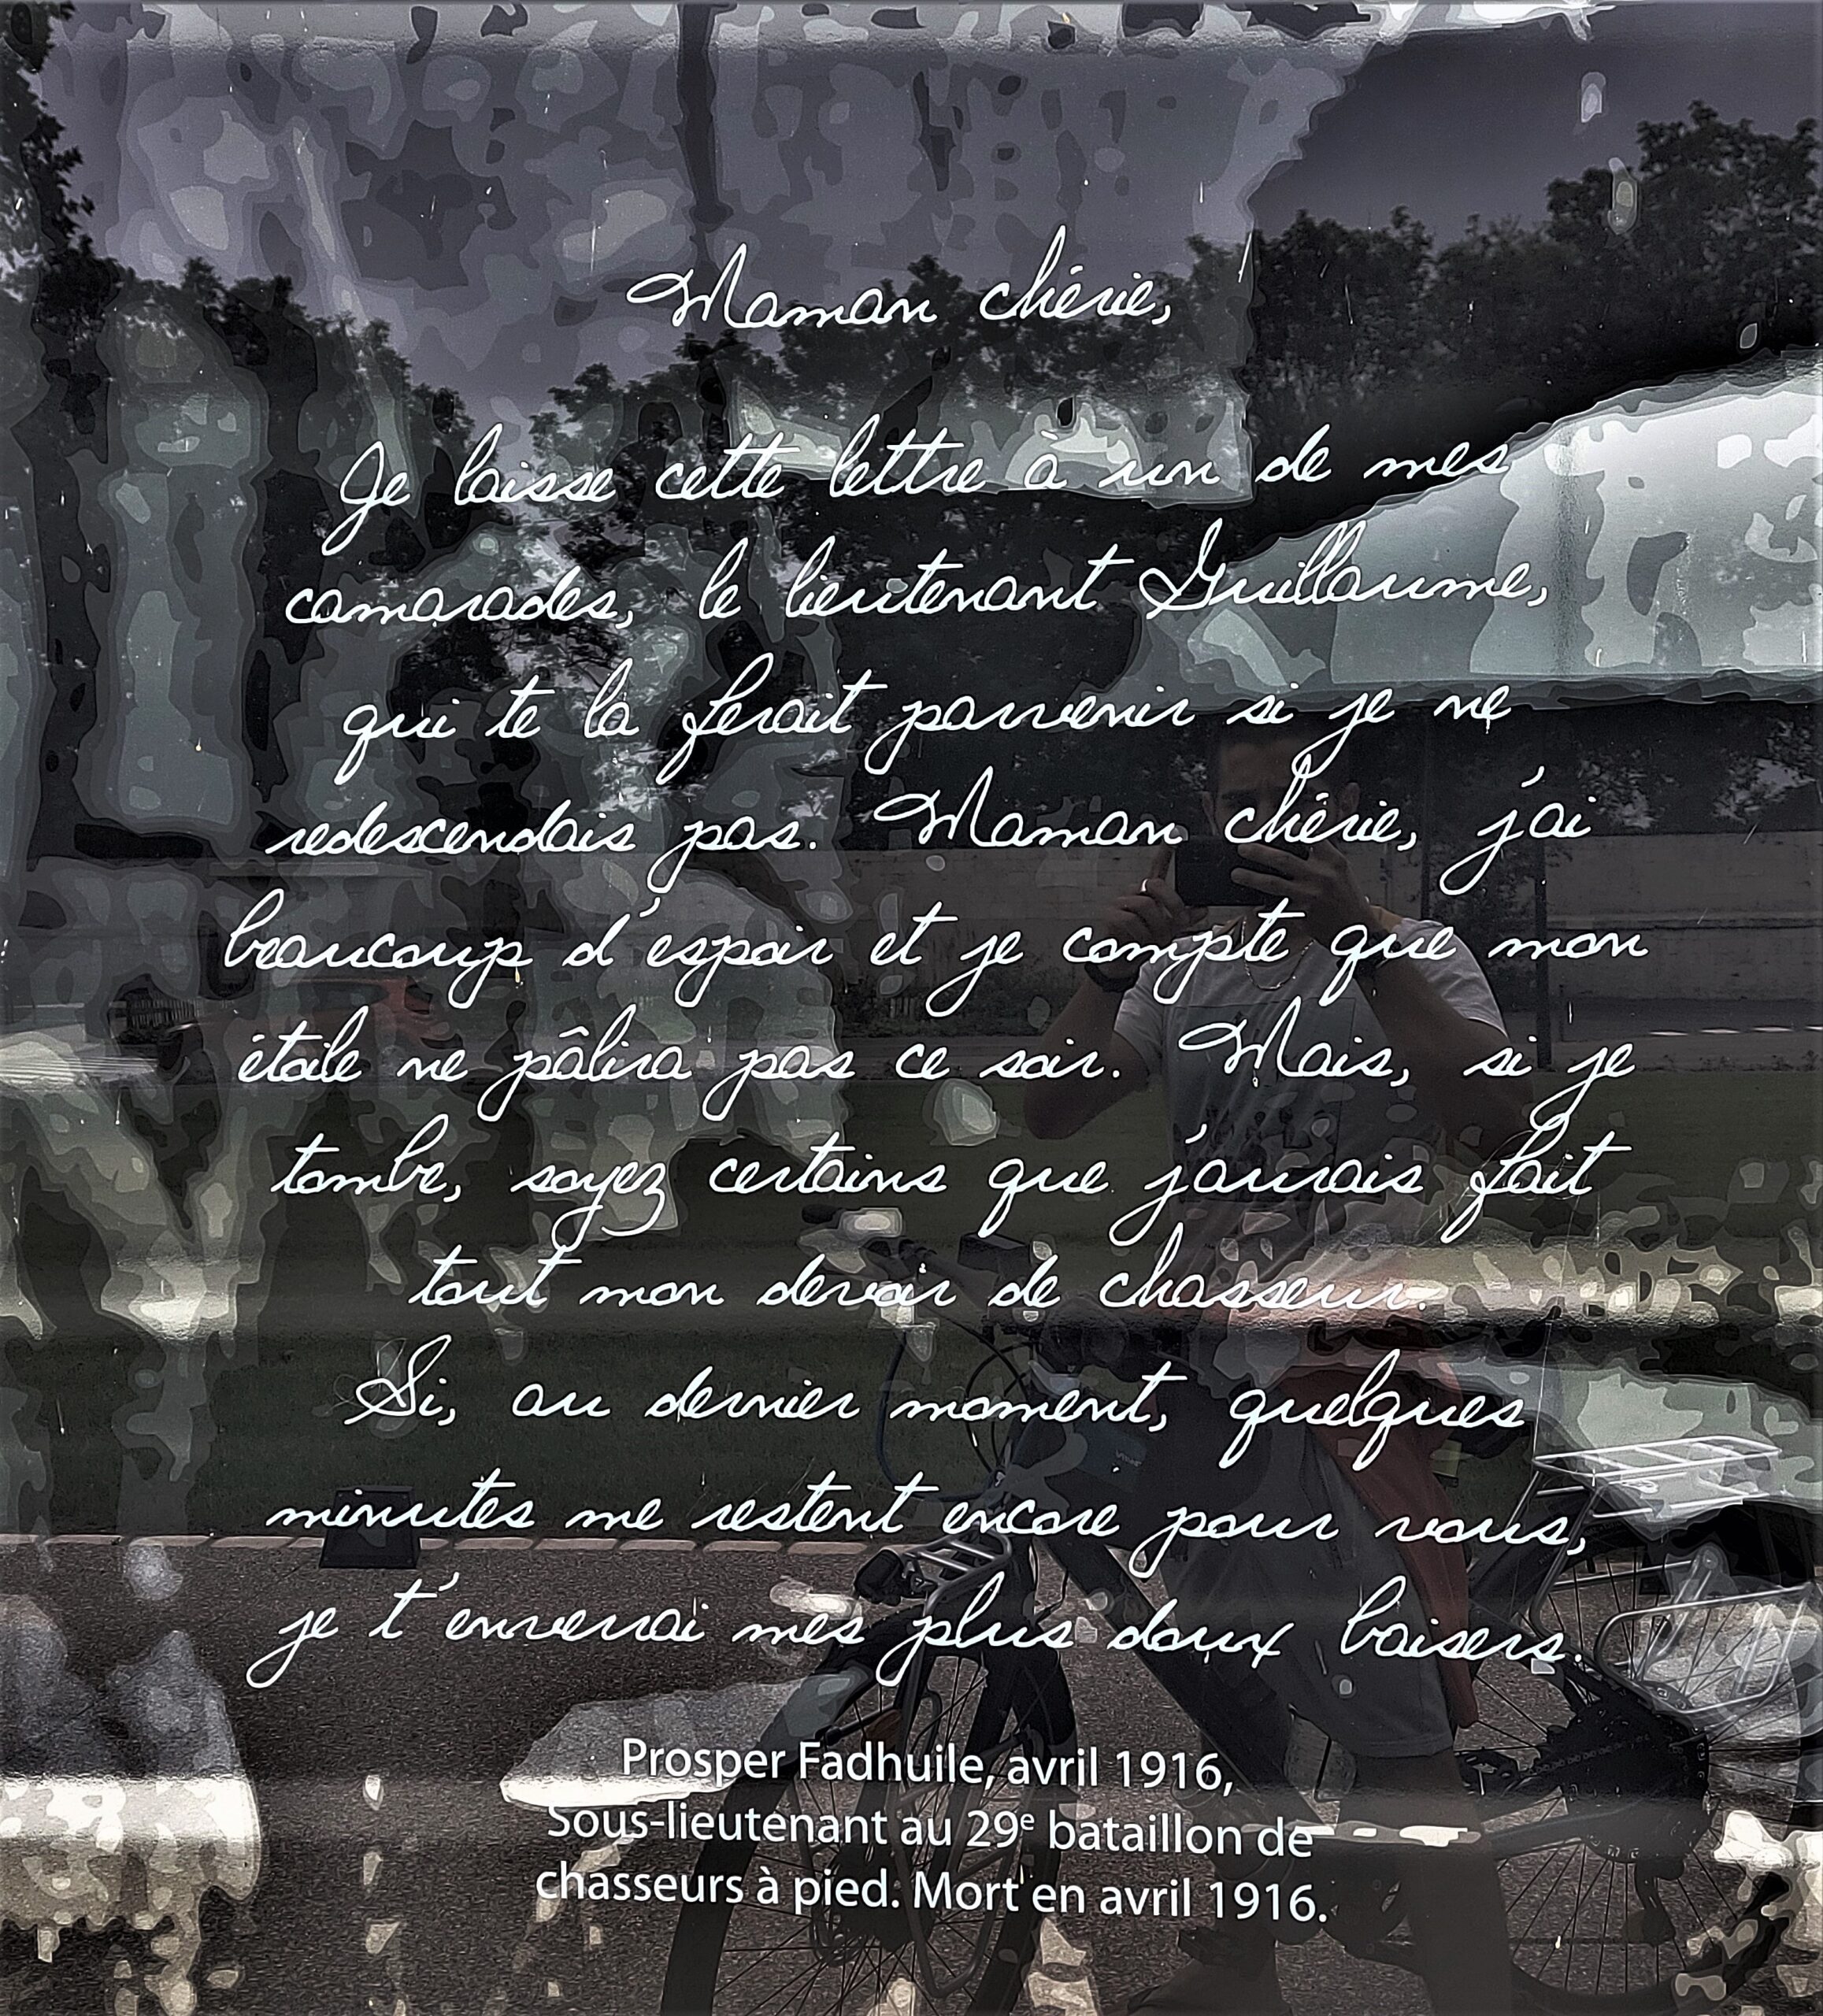 Maman chérie,
Je laisse cette lettre à un de mes
camarades, le lieutenant Guillaume,
qui te la ferait parvenir si je ne
redescendais pas. Maman chérie, j'ai
beaucoup d'espoir et je compte que mon
étoile ne pâlira pas ce soir. Mais, si je
tombe, soyez certains que j'aurais fait
tout mon devoir de chasseur.
Si, au dernier moment, quelques
minutes me restent encore pour vous,
je t'enverrai mes plus doux baisers.
Prosper Fadhuile, avril 1916,
Sous-lieutenant au 29e bataillon de
chasseurs à pied. Mort en avril 1916.